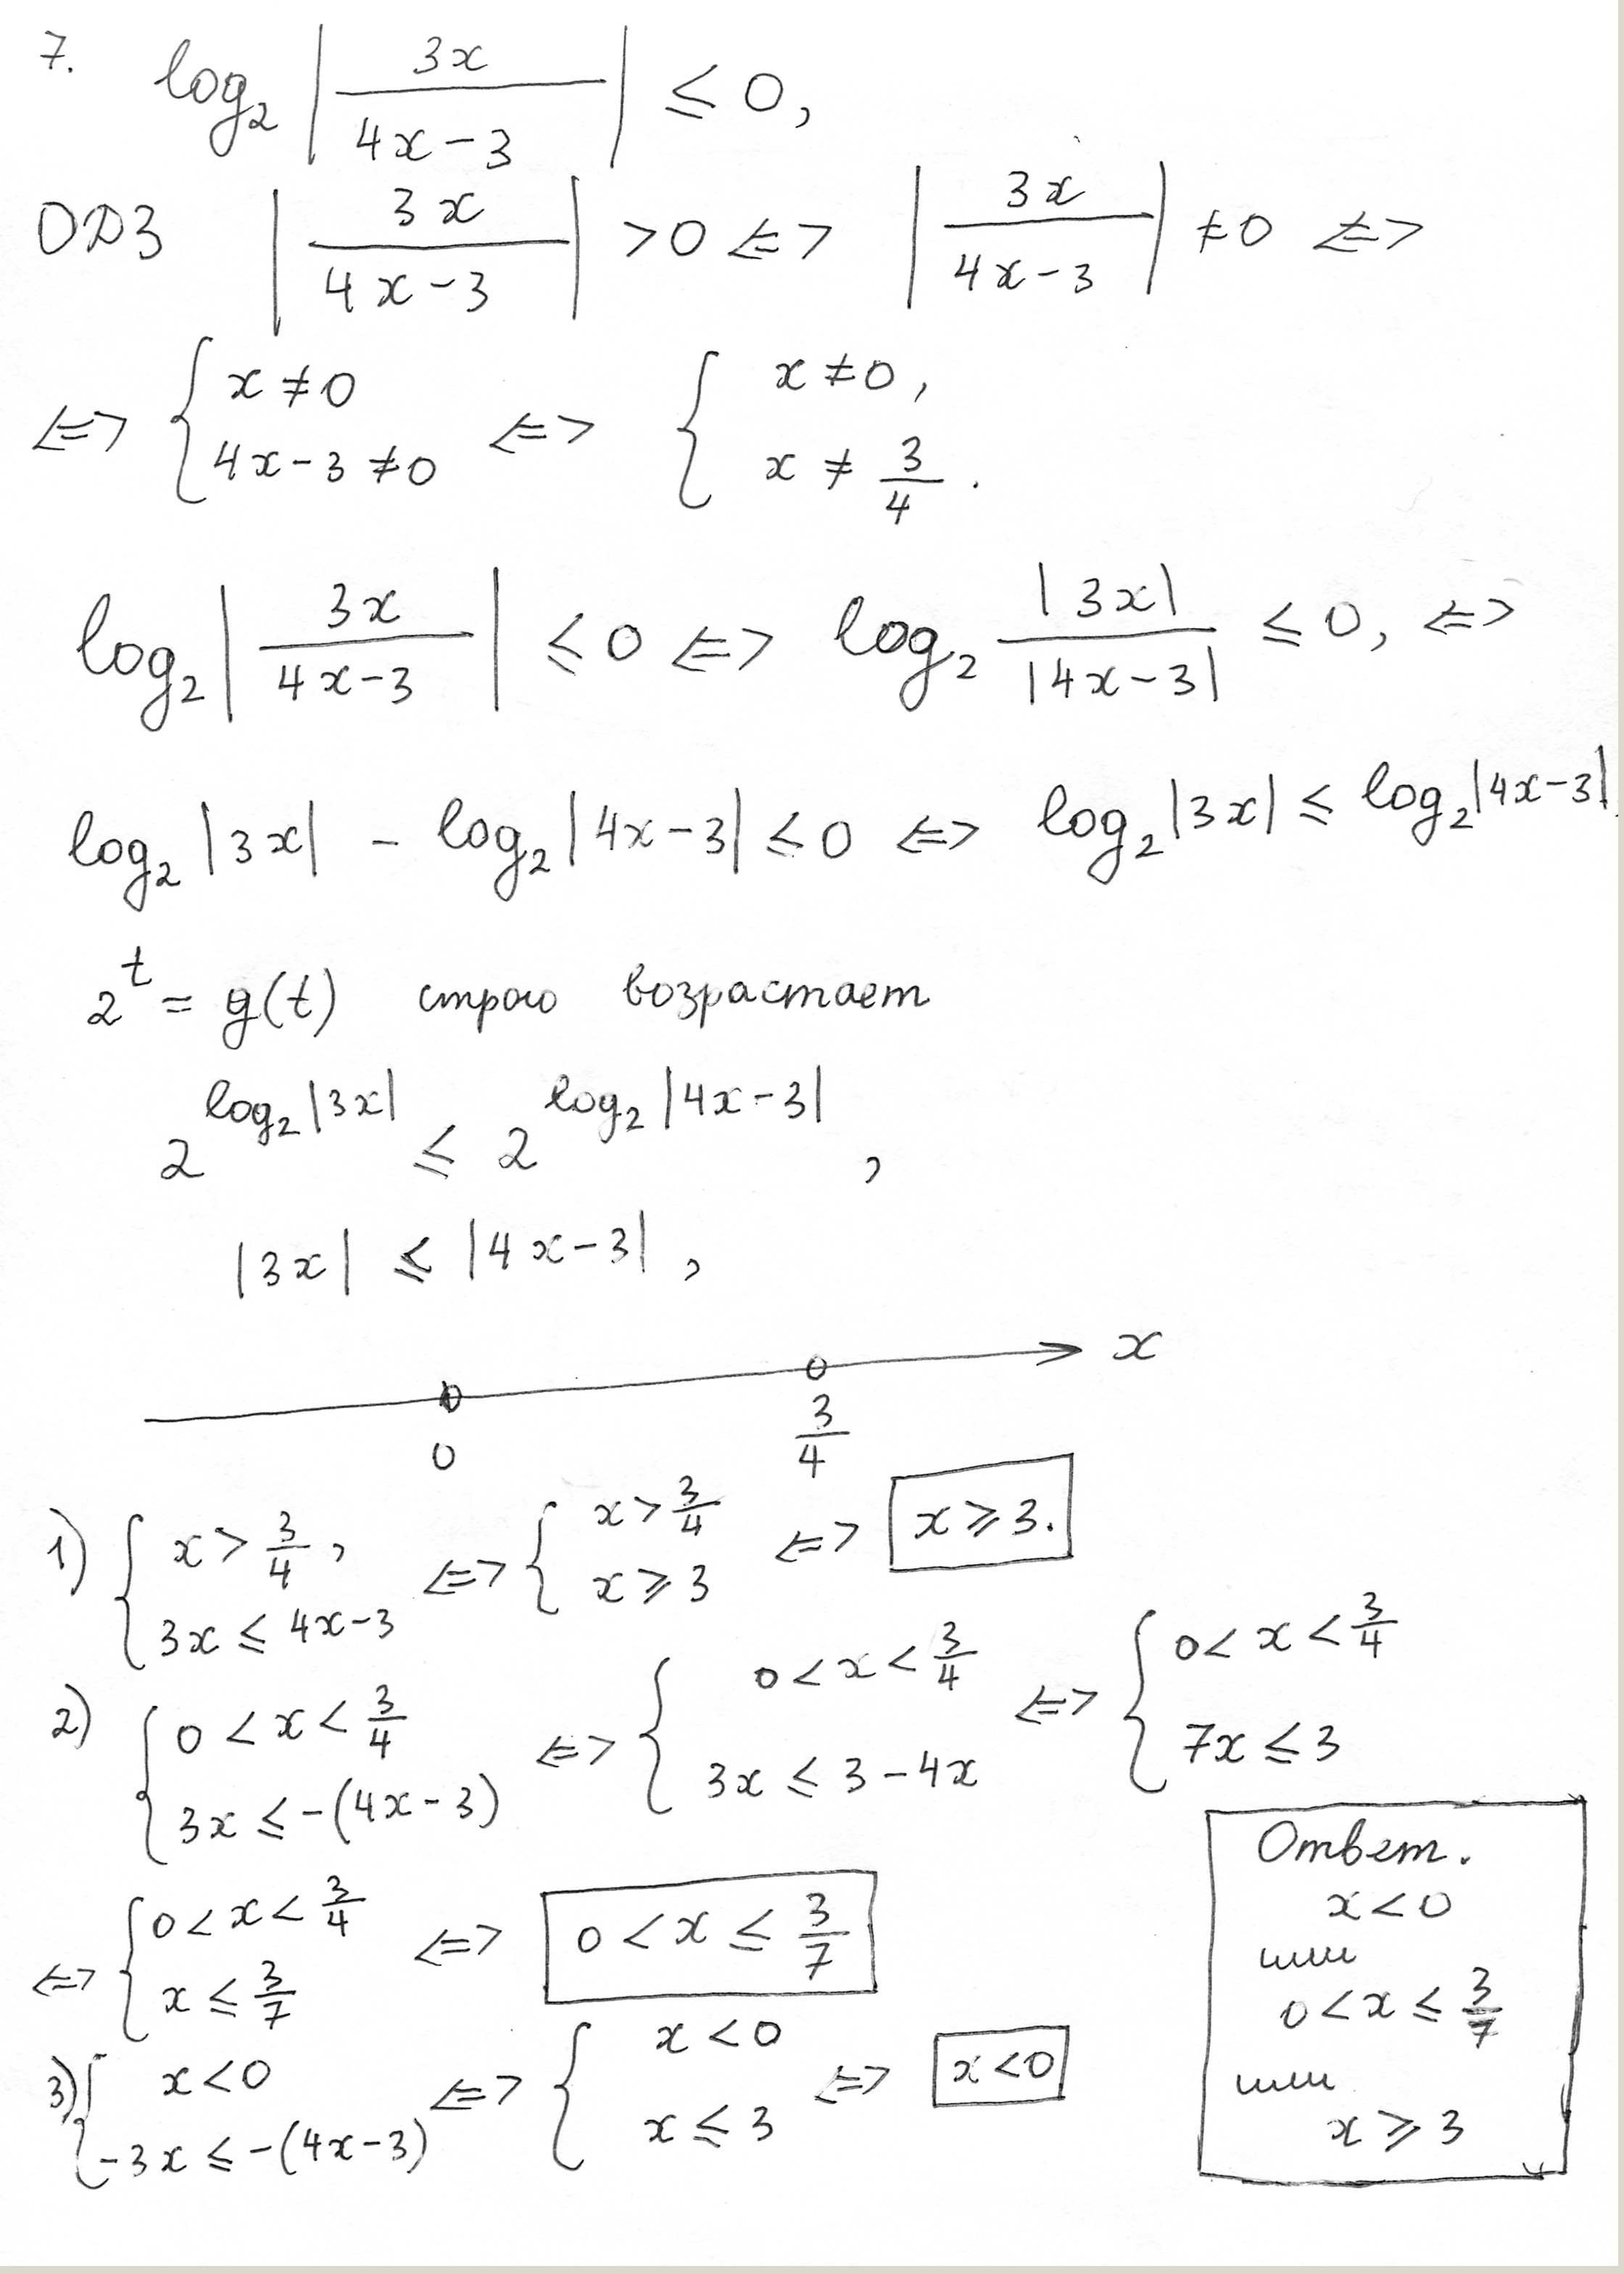 7. log₂ |3x / (4x-3)| ≤ 0,
ОДЗ |3x / (4x-3)| > 0 <=> |3x / (4x-3)| ≠ 0 <=>
<=> { x ≠ 0 ; 4x-3 ≠ 0 <=> { x ≠ 0, ; x ≠ 3/4 .
log₂ |3x / (4x-3)| ≤ 0 <=> log₂ |3x| / |4x-3| ≤ 0, <=>
log₂ |3x| - log₂ |4x-3| ≤ 0 <=> log₂ |3x| ≤ log₂ |4x-3|
2^t = g(t) строго возрастает
2^(log₂ |3x|) ≤ 2^(log₂ |4x-3|) ,
|3x| ≤ |4x-3| ,
x
0 3/4
1) { x > 3/4 , ; 3x ≤ 4x-3 <=> { x > 3/4 ; x ⩾ 3 <=> x ⩾ 3.
2) { 0 < x < 3/4 ; 3x ≤ -(4x-3) <=> { 0 < x < 3/4 ; 3x ≤ 3-4x <=> { 0 < x < 3/4 ; 7x ≤ 3
<=> { 0 < x < 3/4 ; x ≤ 3/7 <=> 0 < x ≤ 3/7
3) { x < 0 ; -3x ≤ -(4x-3) <=> { x < 0 ; x ≤ 3 <=> x < 0
Ответ.
x < 0
или
0 < x ≤ 3/7
или
x ⩾ 3